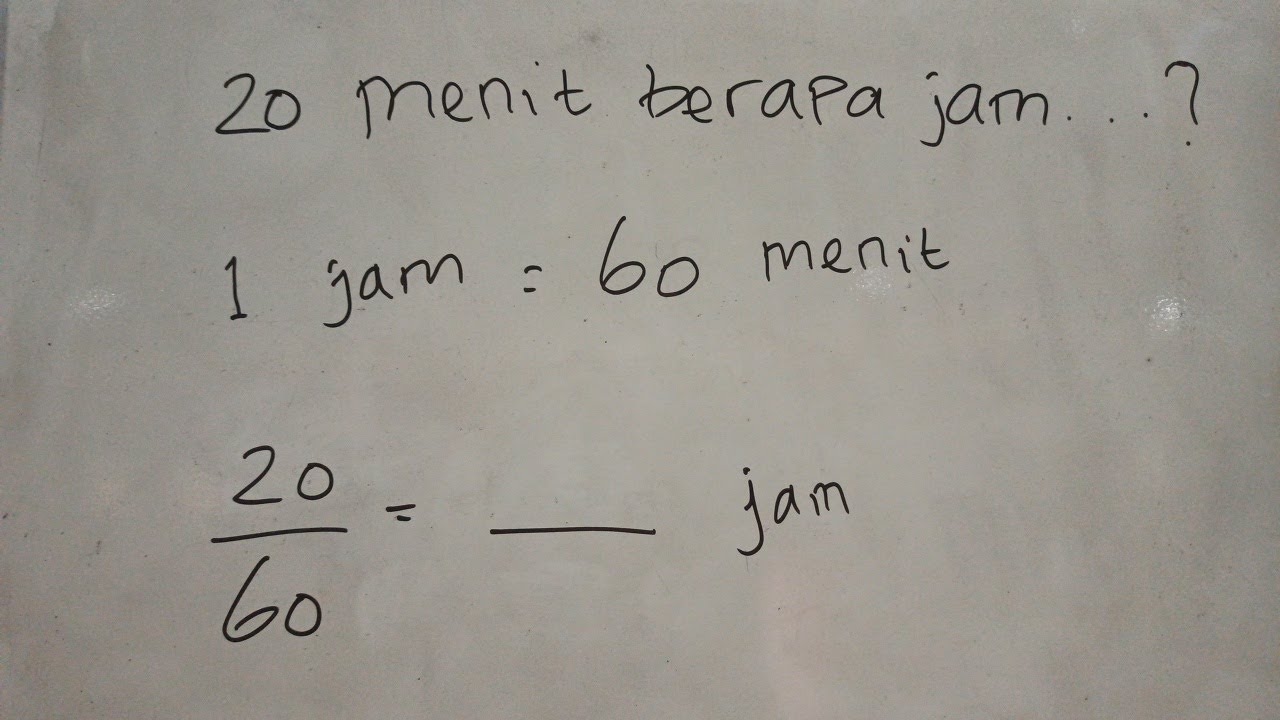 20 menit berapa jam...?
1 jam = 60 menit
20
60 = ___ jam